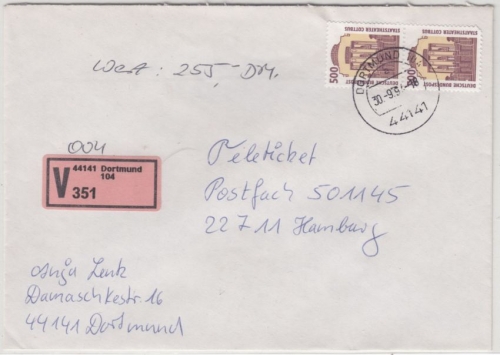 500
STAATSTHEATER COTTBUS
DEUTSCHE BUNDESPOST
500
STAATSTHEATER COTTBUS
DEUTSCHE BUNDESPOST
DORTMUND
30.-9.9
44141
Wert: 255,- DM.
004
V
44141 Dortmund
104
351
Teleticket
Postfach 501145
22711 Hamburg
Anja Lenk
Damaschkestr 16
44141 Dortmund